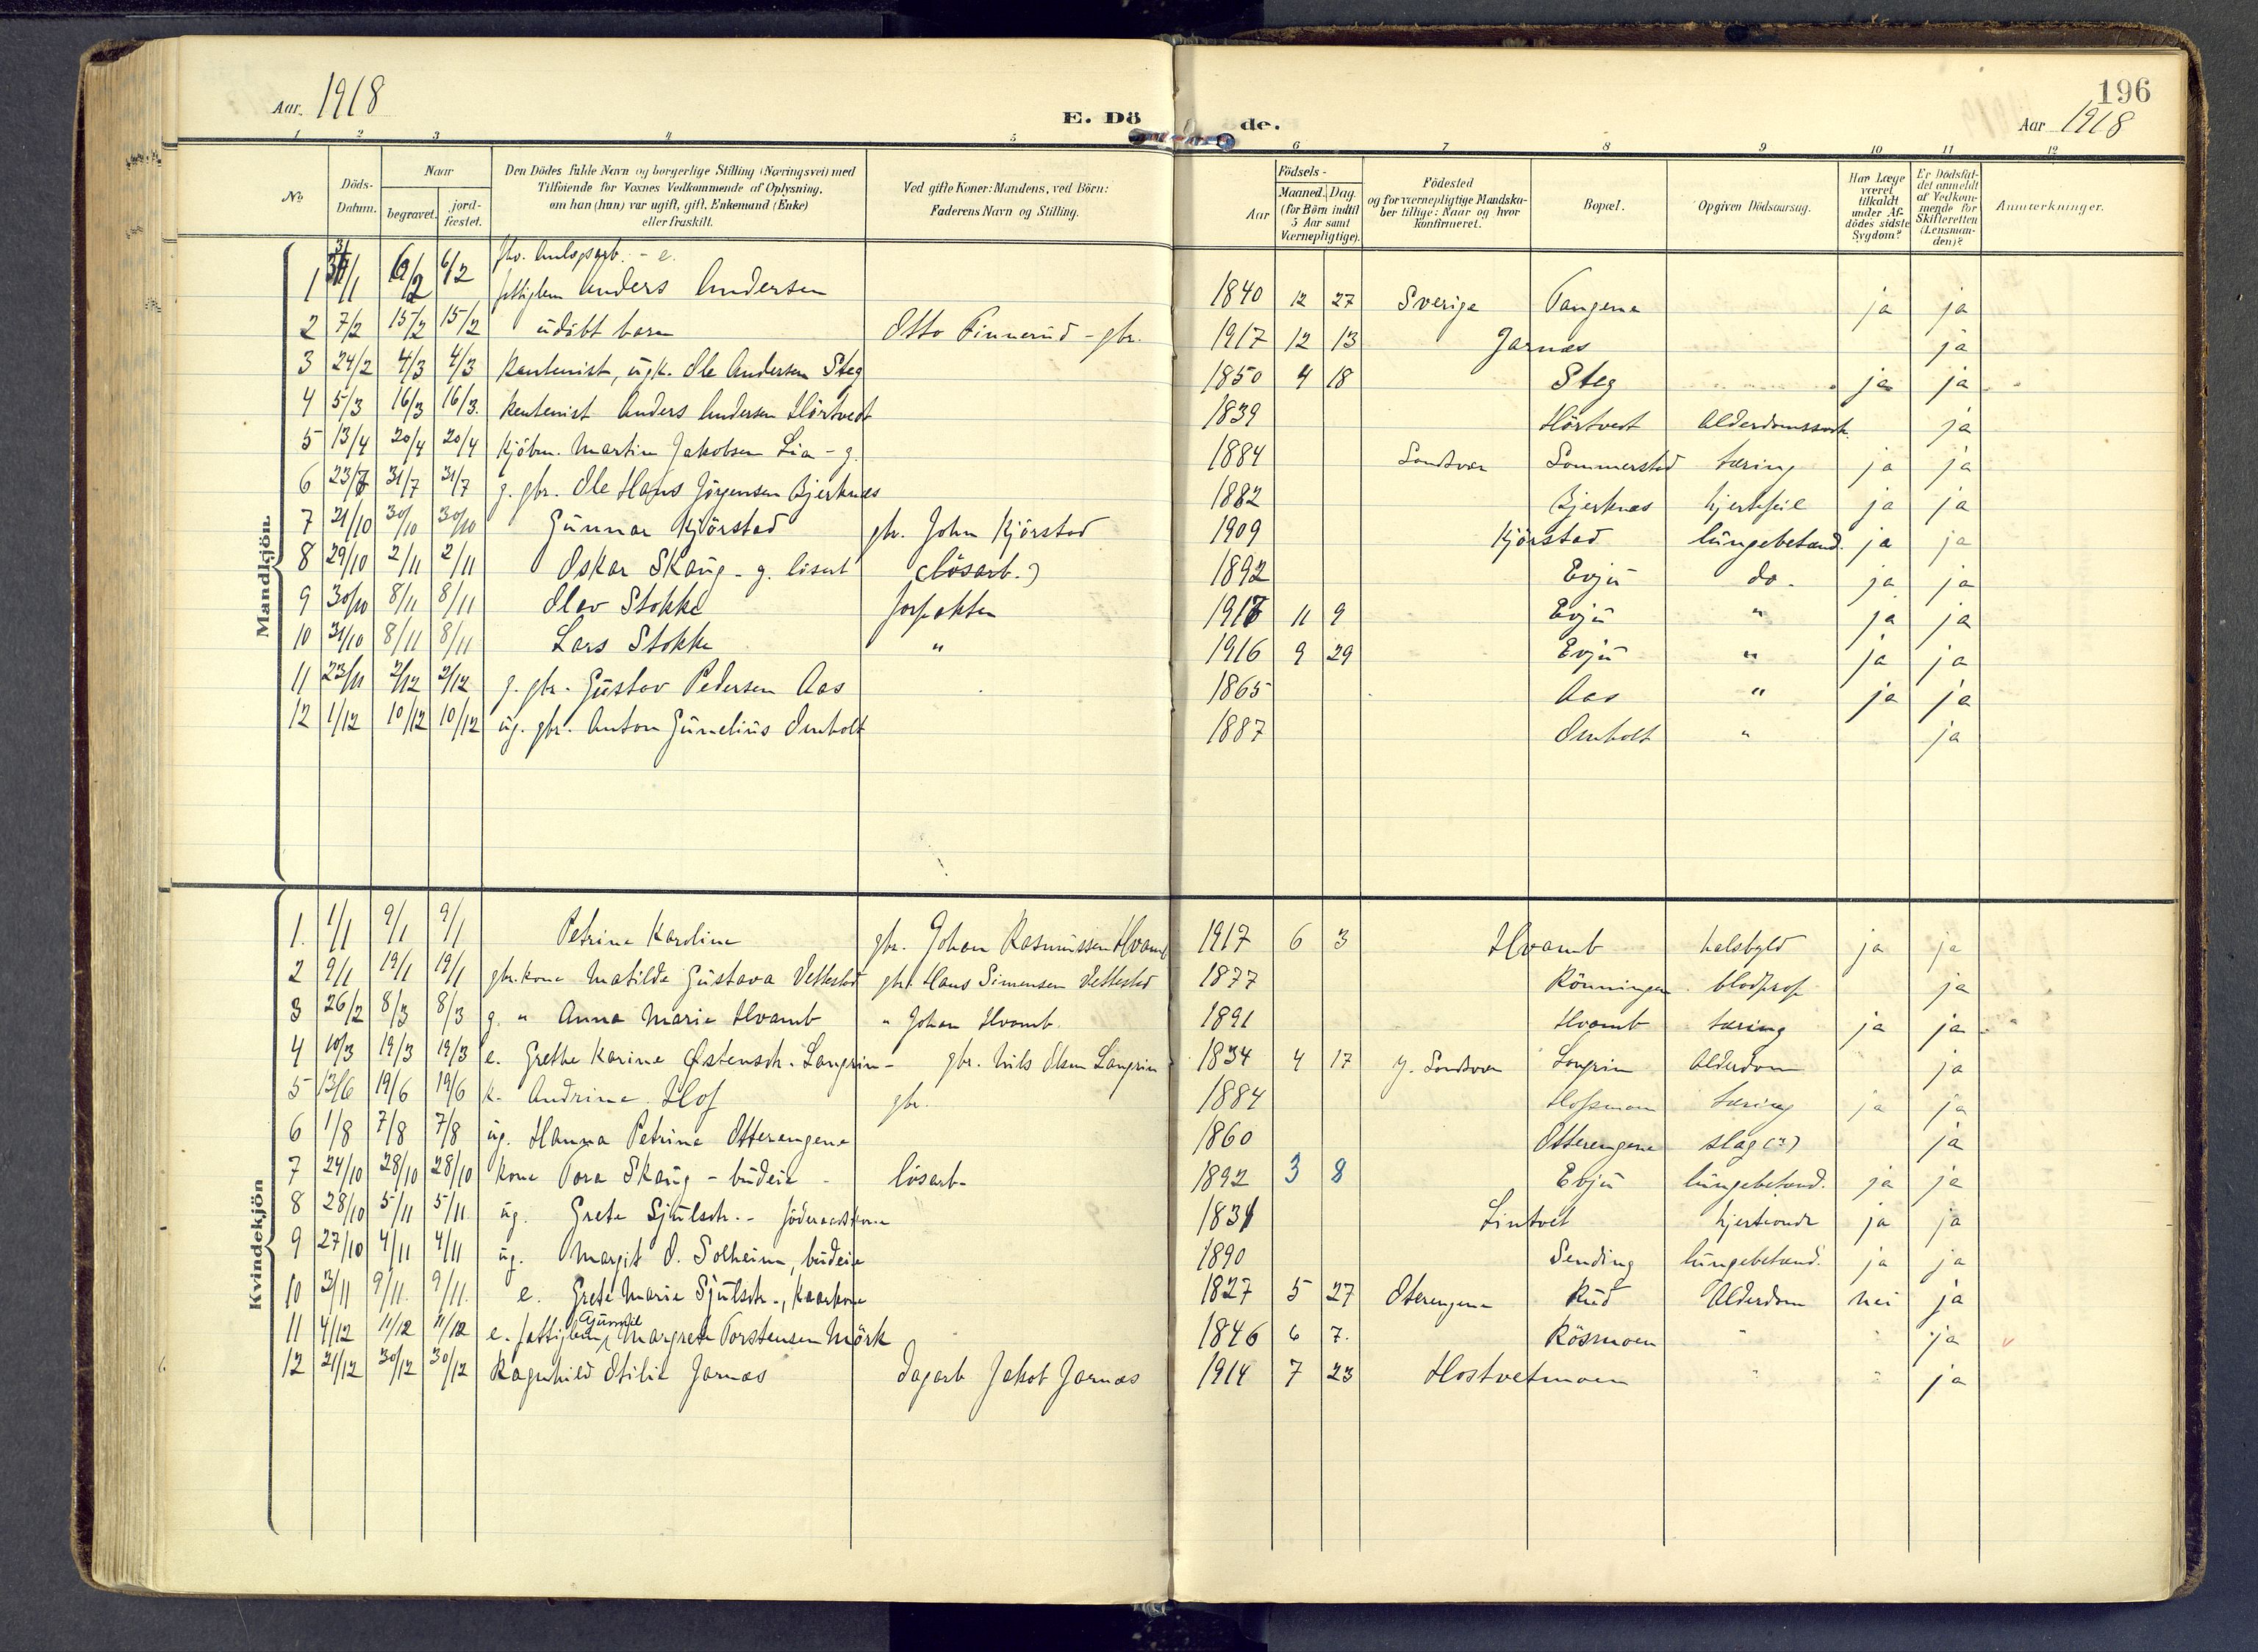 196
Aar 1918
E. Döde.
Aar 1918
1 2 3 4 5 6 7 8 9 10 11 12
No
Döds-Datum.
Naar
begravet.
jord-fæstet.
Den Dödes fulde Navn og borgerlige Stilling (Næringsvei) med
Tilføiende for Voxnes Vedkommende af Oplysning,
om han (hun) var ugift, gift, Enkemand (Enke)
eller fraskilt.
Ved gifte Koner: Mandens, ved Börn:
Faderens Navn og Stilling.
Födsels-
Aar
Maaned.
Dag.
(for Börn indtil
5 Aar samt
Værnepligtige).
Födested
og for værnepligtige Mandska-
ber tillige: Naar og hvor
konfirmeret.
Bopæl.
Opgiven Dödsaarsag.
Har Læge
været
tilkaldt
under Af-
dödes sidste
Sygdom?
Er Dödsfal-
det anmeldt
af Vedkom-
mende for
Skifteretten
(Lensman-
den)?
Anmærkninger.
Mandkjön.
1 31/1 6/2 6/2 - e. Anders Andersen 1840 12 27 Sverige Tangena ja ja
2 7/2 15/2 15/2 udöbt barn Otto Finnerud - gbr. 1917 12 13 Jarnæs ja
3 24/2 4/3 4/3 Rentenist, ugk. Ole Andersen Steg 1850 4 18 Steg ja ja
4 5/3 16/3 16/3. Rentenist Anders Andersen Hörtvedt 1839 Hörtvedt Alderdomssvak. ja
5 13/4 20/4 20/4 Kjöbm. Martin Jakobsen Lia - g. 1884 Sandsvær Sommerstad tæring ja ja
6 23/7 31/7 31/7 g. gbr. Ole Hans Jörgensen Bjerknæs 1882 Bjerknæs hjertefeil ja ja
7 21/10 30/10 30/10 Gunnar Kjörstad gbr. John Kjörstad 1909 Kjörstad lungebetænd. ja ja
8 29/10 2/11 2/11 Oskar Skaug - g. lösarb (lösarb.) 1892 Evju do. ja ja
9 30/10 8/11 8/11 Olav Stokke forpakter 1917 11 9 Evju " ja ja
10 31/10 8/11 8/11 Lars Stokke " 1916 9 29 Evju " ja ja
11 23/11 2/12 2/12 g. gbr. Gustav Pedersen Aas 1865 Aas " ja ja
12 1/12 10/12 10/12 ug. gbr. Anton Gunelius Omholt 1887 Omholt " ja
Kvindekjön
1. 1/1 9/1 9/1 Petrine Karoline gbr. Johan Rasmussen Hvamb 1917 6 3 Hvamb halsbyld ja ja
2 9/1 19/1 19/1 gbr.kone Matilde Gustava Vettestad gbr. Hans Simensen Vettestad 1877 Rönningen blodprop ja
3 26/2 8/3 8/3 g. " Anna Marie Hvamb " Johan Hvamb. 1891 Hvamb tæring ja ja
4 10/3 19/3 19/3 e. Grethe Karine Østensdt. Langrin - gbr. Nils Olsen Langrin 1834 4 17 Y. Sandsvær Langrin Alderdom ja
5 13/6 19/6 19/6 k. Andrine Hof gbr. 1884 Hofsmoen tæring ja ja
6 1/8 7/8 7/8 ug. Hanna Petrine Otterengene 1860 Otterengene slag(?) ja
7 24/10 28/10 28/10 kone Tora Skaug - budeie - lösarb. 1892 3 8 Evju lungebetænd. ja ja
8 28/10 5/11 5/11 ug. Grete Sjulsdt. - föderaadskone 1831 Lintvet hjerteonde ja ja
9 27/10 4/11 4/11 ug. Margit O. Solheim, budeie 1890 Sending lungebetænd. ja ja
10 3/11 9/11. 9/11. e. Grete Marie Sjulsdt., kaarkone 1827 5 27 Oterengene Rud Alderdom nei ja
11 4/12 11/12 11/12 e. fattiglem, Margrete Torstensen Mörk 1846 6 7. Rösmoen " " ja
12 21/12 30/12 30/12 Ragnhild Otilie Jarnæs Dagarb Jakob Jarnæs 1914 7 23 Hostvetmoen " " ja